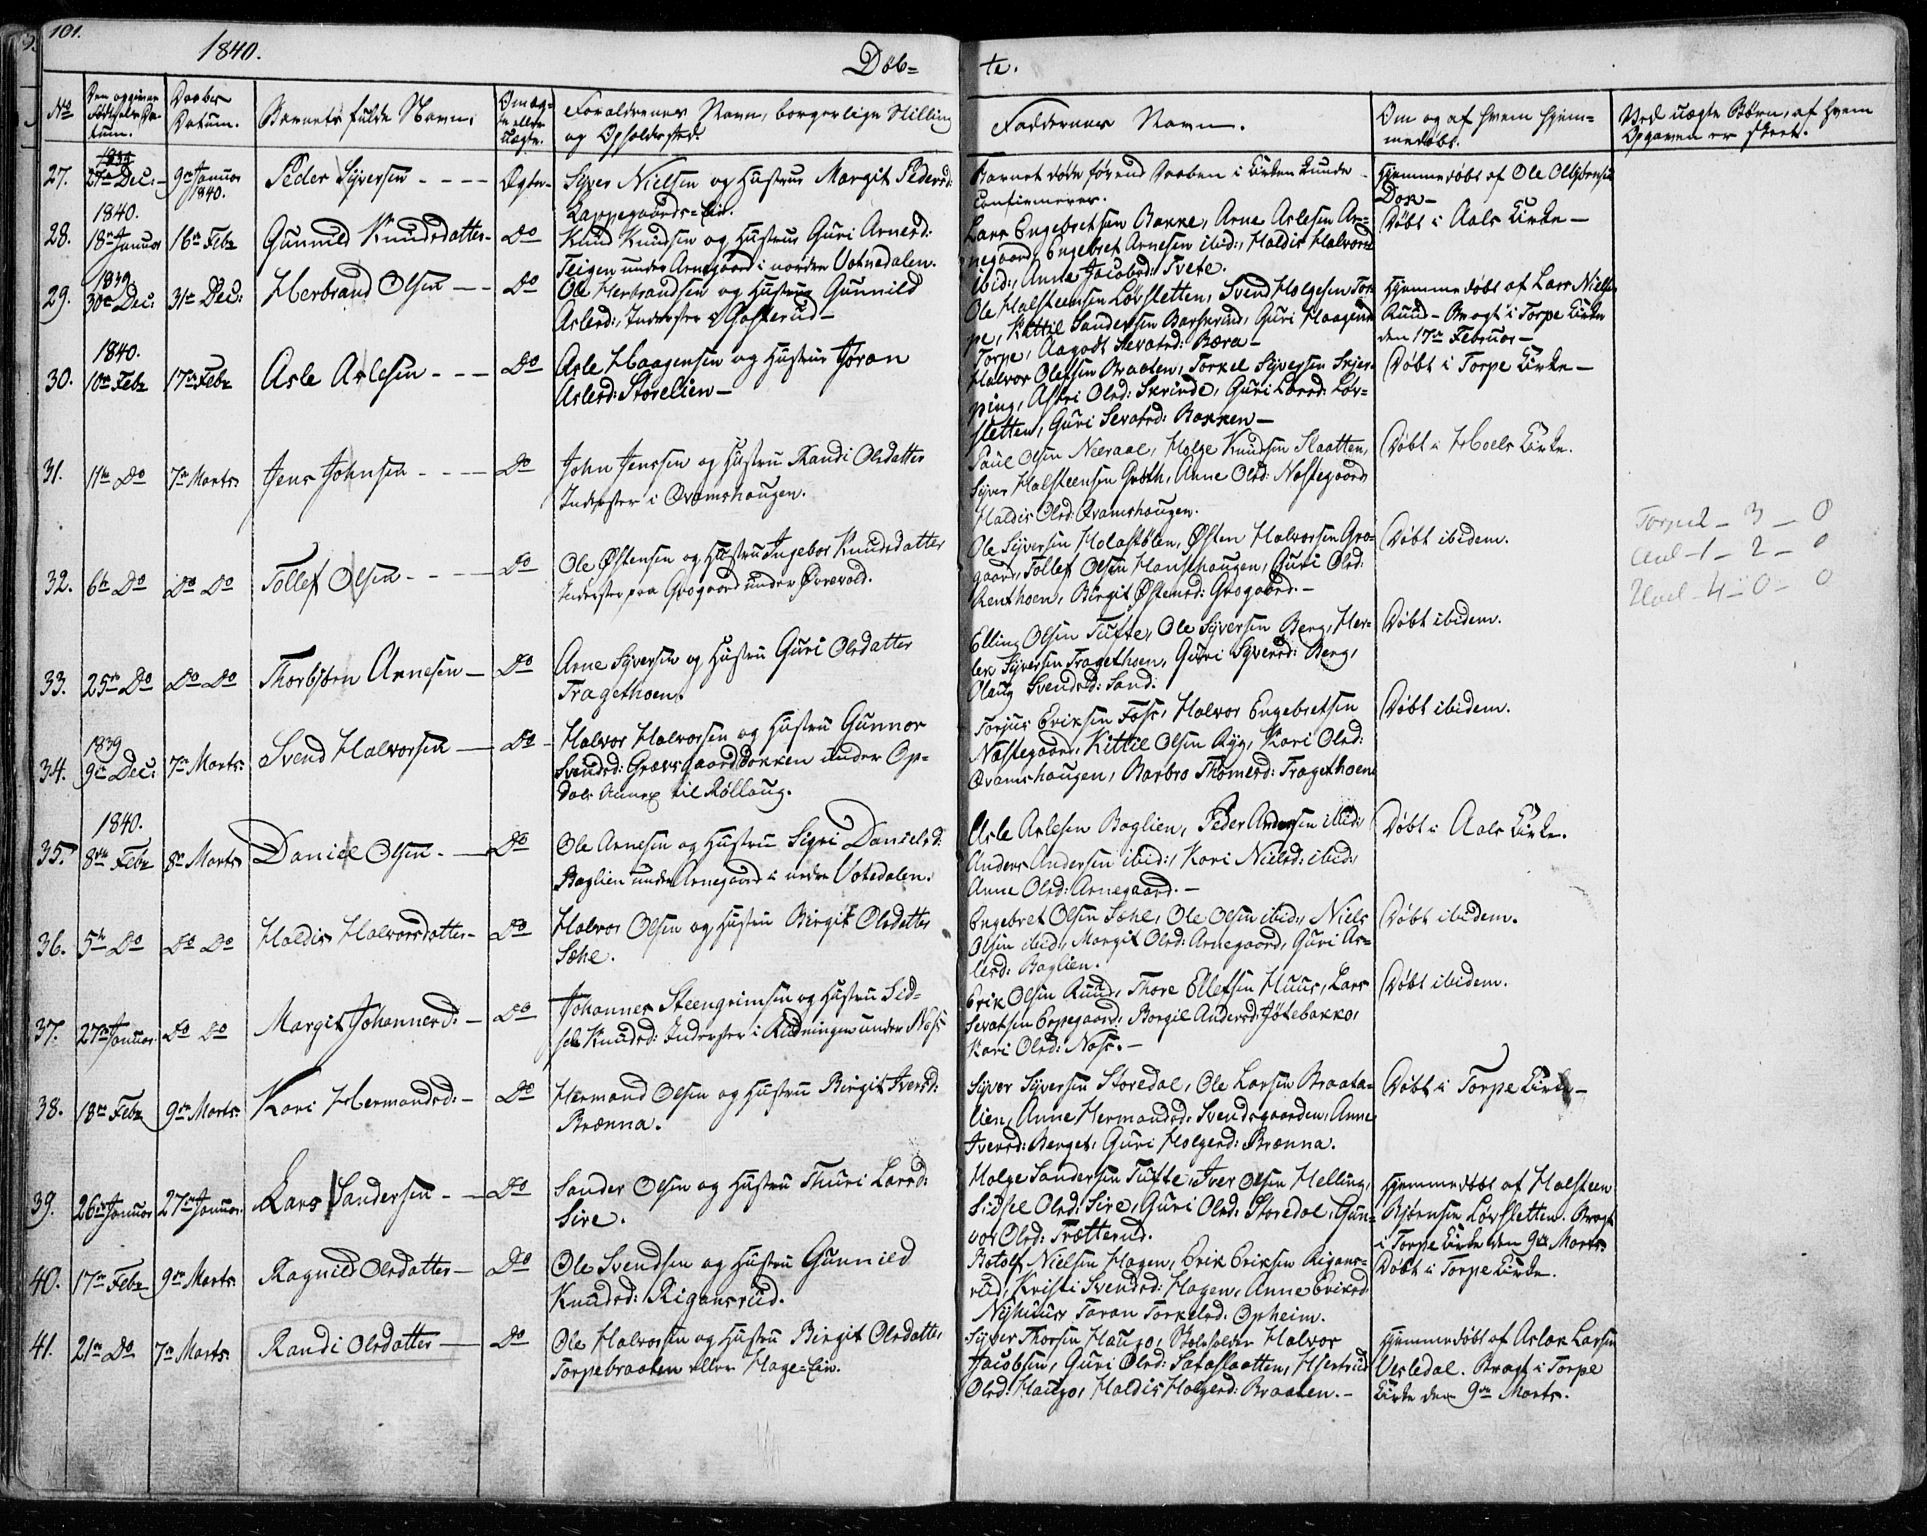 101.
1840.
Døb=
te.
No
Den opgivne Fødsels Datum.
Daabs Datum.
Barnets fulde Navn.
Om ægte eller Uægte.
Forældrenes Navn, borgerlige Stilling
og Opholdssted.
Faddernes Navn.
Om og af hvem hjem=
medøbt.
Ved uægte Børn, af hvem
Opgaven er skeet.
27.
1839
Dec:
9de Januar 1840.
Peder Syversen
Ægte
Syver Nielsen og Hustrue Margit Pedersd:
Lappegaards=Eie.
Barnet døde førend Daaben i Kirken kunde
Confirmeres.
Hjemmedøbt af Ole
Dok
28.
1840.
18de Januar
16de Febr
Gunnild Knudsdatter
Do
Knud Knudsen og Hustrue Guri Arnesd:
Teigen under Arnegaard i nordre Votnedalen.
Lars Engebretsen Bakke, Arne Aslesen Ar=
negaard, Engebret Arnesen ibid:, Haldis Halvorsd:
ibid:, Anne Jacobsd: Tvete.
Døbt i Aals Kirke
29.
1839
30te Dec:
31te Dec:
Herbrand Olsen
Do
Ole Herbrandsen og Hustrue Gunnild
Aslesd:, Inderster Golserud
Ole Halsteensen Løvsletten, Svend Holgesen Tor=
pe, Kittil Sandersen Guri Haagensd:
Torpe, Aagodt Sevatsd: Bæra
Hjemmedøbt af Lars Nielsen
Ruud Bragt i Torpe Kirke
den 17de Februar
30.
1840.
10de Febr
17de Febr
Asle Aslesen
Do
Asle Haagensen og Hustrue Jøran
Aslesd: Storelien
Halvor Olefsen Braaten, Torkel Syversen Skjer=
ping, Astri Olsd: Skrinde, Guri Larsd: Løv=
sletten, Guri Sevatsd: Bakken
Døbt i Torpe Kirke
31.
11te Do
7de Marts
Jens Johnsen
Do
John Jenssen og Hustru Randi Olsdatter
Inderster i Qvamshaugen.
Paul Olsen Neeraal, Holge Knudsen Slaatten,
Syver Halsteensen Grøth, Anne Olsd: Næstegaard
Haldis Olsd: Qvamshaugen.
Døbt i Hoels Kirke.
32.
6te Do
Do Do
Tollef Olsen
Do
Ole Østensen og Hustru Ingebor Knudsdatter
Inderster paa Grøgaard under Øvrevold.
Ole Syversen Holastølen, Østen Halvorsen Gro=
gaard, Tollef Olsen Hanshaugen, Guri Olsd:
Renthoen, Birgit Østensd: Grogaard.
Døbt ibidem.
33.
25de Do
Do Do
Thorbjørn Arnesen
Do
Arne Syversen og Hustru Guri Olsdatter
Tragethoen.
Elling Olsen Tufte, Ole Syversen Berg, Her=
lek Syversen Tragethoen, Guri Syversd: Berg,
Olaug Svendsd: Sand.
Døbt ibidem.
34.
1839
9de Dec:
7de Marts
Svend Halvorsen
Do
Halvor Halvorsen og Hustru Gunnor
Svendsd: Grævsgaardbakken under Op=
dals Annex til Rollaug.
Torjus Eriksen Foss, Halvor Engebretsen
Næstegaard, Kittil Olsen Ryg, Kari Olsd:
Qvamshaugen, Barbro Thomesd: Tragethoen
Døbt ibidem.
35.
1840.
8de Febr
8de Marts
Daniel Olsen
Do
Ole Arnesen og Hustru Sigri Danielsd:
Baglien under Arnegaard i nedre Votedalen.
Asle Aslesen Baglien, Peder Andersen ibid:
Anders Andersen ibid:, Kari Nielsd: ibid:
Anne Olsd: Arnegaard.
Døbt i Aals Kirke.
36.
5te Do
Do Do
Haldis Halvorsdatter
Do
Halvor Olsen og Hustru Birgit Olsdatter
Sæhe.
Engebret Olsen Sæhe, Ole Olsen ibid:, Niels
Olsen ibid:, Margit Olsd: Arnegaard, Guri As=
lesd: Baglien.
Døbt ibidem.
37.
27de Januar
Do Do
Margit Johannesd:
Do
Johannes Steengrimsen og Hustru Sid=
sel Knudsd: Inderster i Rudningen under Noss
Erik Olsen Ruud, Thore Ellefsen Huus, Lars
Sevatsen Eppegaard, Bargil Andersd: Jøtebakke,
Kari Olsd: Noss.
Døbt ibidem.
38.
18de Febr
9de Marts
Kari Hermandsd:
Do
Hermand Olsen og Hustru Birgit Iversd:
Brænna.
Syver Syversen Storedal, Ole Larsen Braata=
lien, Anne Hermandsd: Svendsgaarden, Anne
Iversd: Berget, Guri Holgesd: Brænna.
Døbt i Torpe Kirke
39.
26de Januar
27de Januar
Lars Sandersen
Do
Sander Olsen og Hustru Thuri Larsd:
Sire.
Holge Sandersen Tufte, Iver Olsen Helling,
Sidsel Olsd: Sire, Guri Olsd: Storedal, Gun=
vor Olsd: Trætterud.
Hjemmedøbt af Halsteen
Bjørnsen Løvsletten. Bragt
i Torpe Kirke den 9de Marts.
40.
17de Febr
9de Marts
Ragnild Olsdatter
Do
Ole Svendsen og Hustru Gunnild
Knudsd: Rigansrud.
Botolf Nielsen Hagen, Erik Eriksen Rigans=
rud, Kristi Svendsd: Hagen, Anne Eriksd:
Nyhuus Taran Torkelsd: Opheim.
Døbt i Torpe Kirke.
41.
21de Do
7de Marts
Randi Olsdatter
Do
Ole Halvorsen og Hustru Birgit Olsdatter
Torpebraaten eller Hage=Eie.
Syver Thorsen Hauge, Skoleholder Halvor
Jacobsen, Guri Olsd: Sataslaatten, Hjertrud
Olsd: Hauge, Haldis Holgesd: Braaten.
Hjemmedøbt af Aslak Larsen
Vesledal. Bragt i Torpe
Kirke den 9de Marts.
Torpe 2 - 3 - 0
Aal - 1 - 2 - 0
Hoel - 4 - 0 - 0